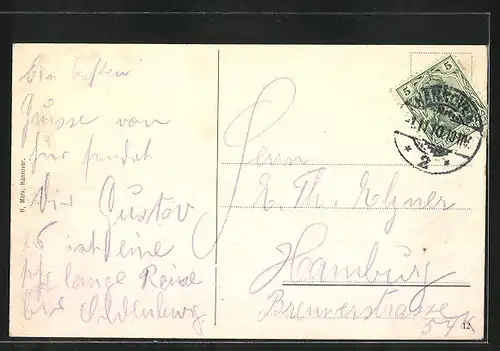 Die besten
Grüsse von
hier sendet
Dir Gustav
es ist eine
lange Reise
bis Oldenburg
H. Marx, Hannover.
5 5
1.11.10.10-11V.
* 2 *
Herrn
Th. Elzner
Hamburg
Bremerstrasse
12